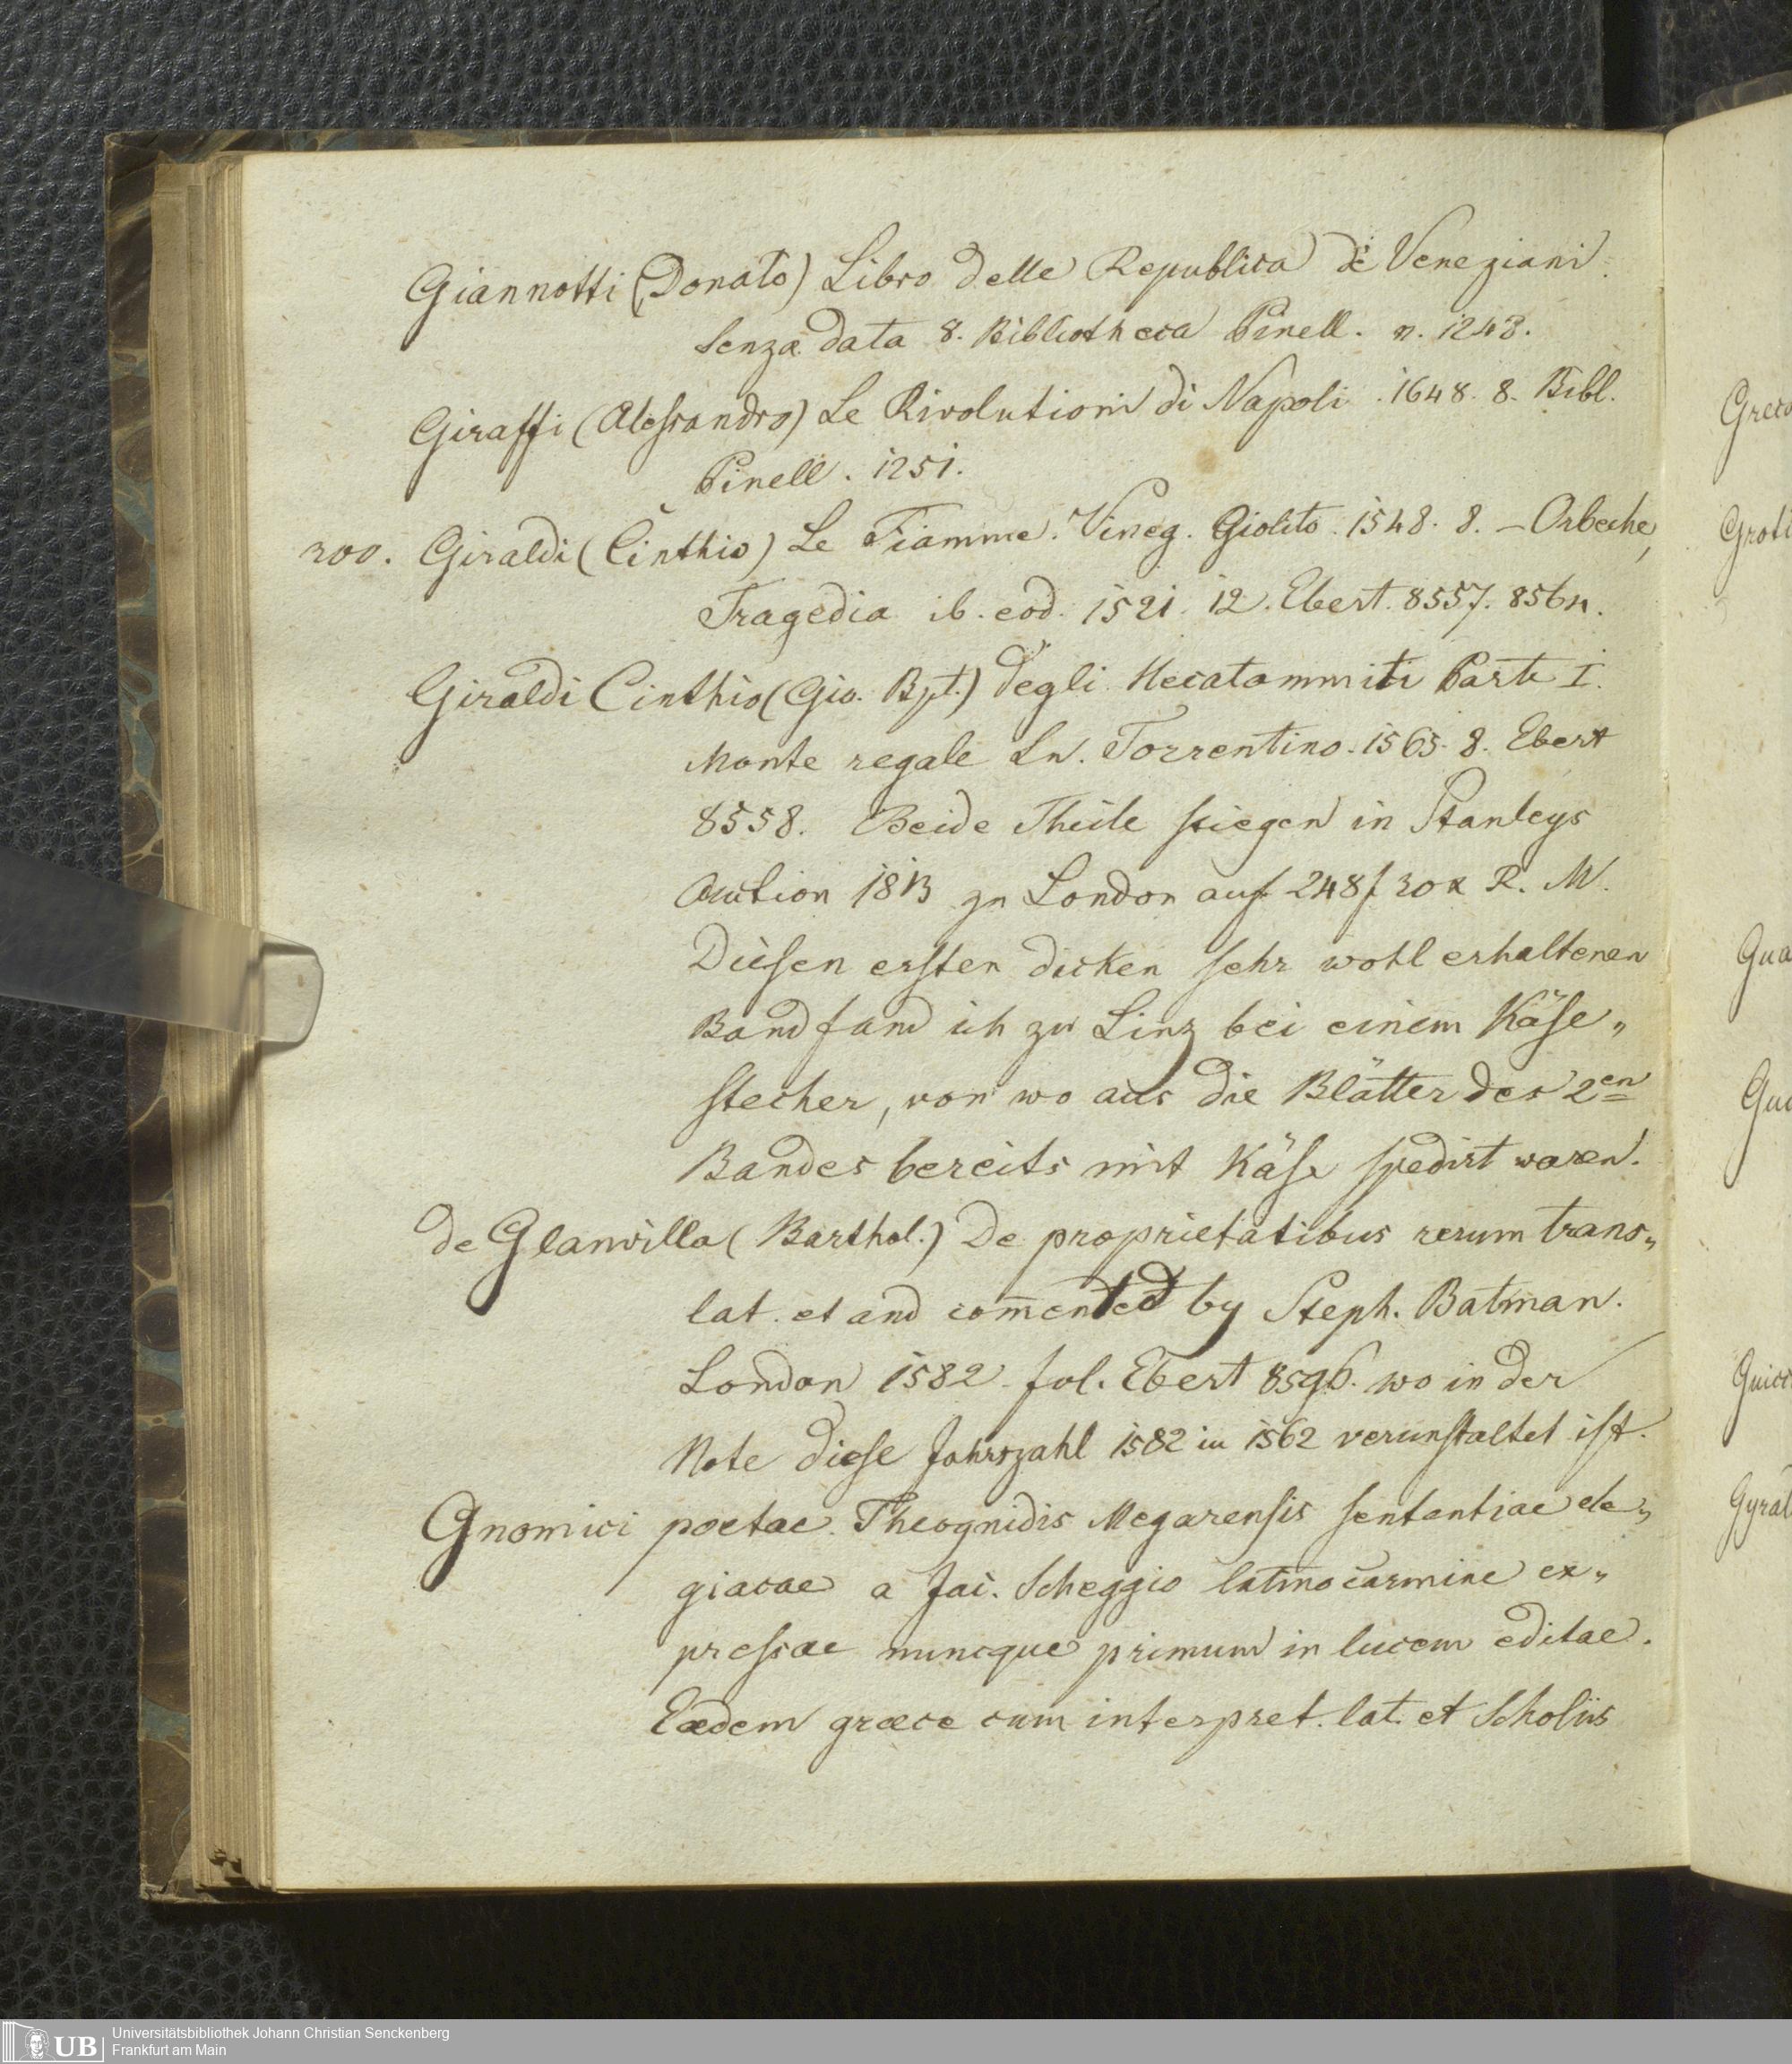 Giannotti (Donato) Libro delle Republica de Veneziani.
Senza data 8. Bibliotheca Pinell. n. 1243.
Giraffi (Alessandro) Le Rivolutioni di Napoli. 1648. 8. Bibl.
Pinell. 1251.
200. Giraldi (Cinthio) Le Fiamme. Vineg. Giolito. 1548. 8. – Orbeche,
Tragedia ib. eod. 1521. 12. Ebert. 8557. 8564.
Giraldi Cinthio (Gio. Bpt.) degli Hecatommiti Parte I.
Monte regale Ln. Torrentino. 1565. 8. Ebert
8558. Beide Theile stiegen in Stanleys
Auction 1813 zu London auf 248 f 30 x R. M.
Diesen ersten dicken sehr wohl erhaltenen
Band fand ich zu Linz bei einem Käse„
stecher, von wo aus die Blätter des 2en
Bandes bereits mit Käse spedirt waren.
de Glanvilla (Barthol.) De proprietatibus rerum trans„
lat. et and com̄ented by Steph. Batman.
London 1582. fol. Ebert 8596. wo in der
Note diese Jahrszahl 1582 in 1562 verunstaltet ist.
Gnomici poetae. Theognidis Megarensis sententiae ele„
giacae a Jac. Scheggio latino carmine ex„
pressae nuncque primum in lucem editae.
Eædem græce cum interpret. lat. et Scholiis
Groti
Gua
Guicc
Gyral
UB
Universitätsbibliothek Johann Christian Senckenberg
Frankfurt am Main